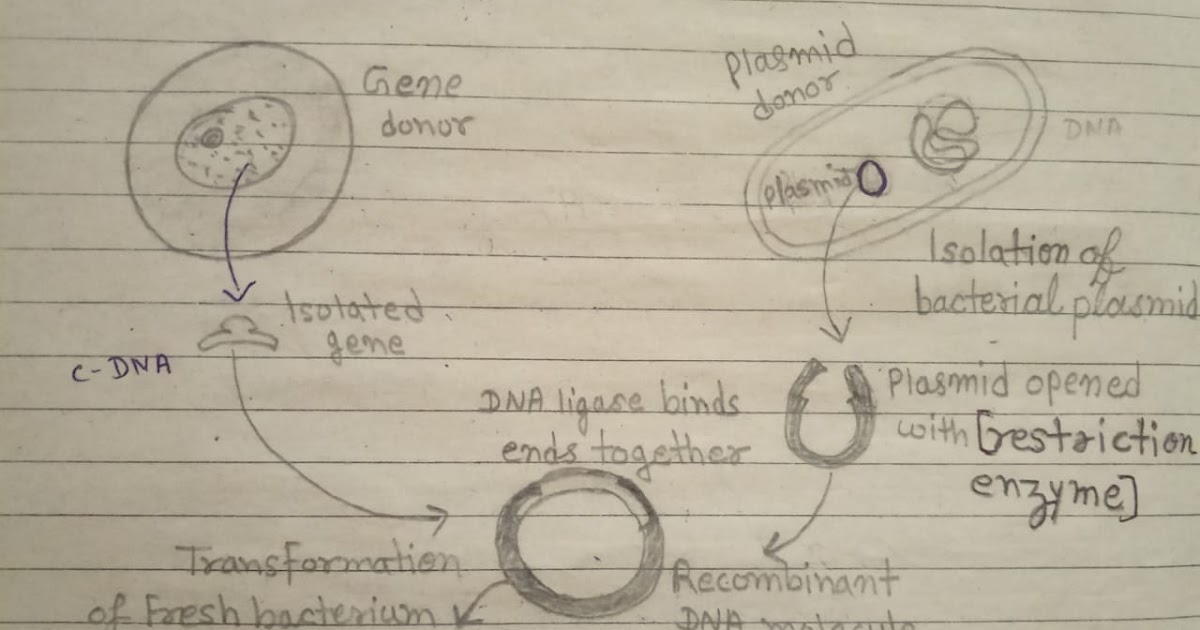 Gene
donor
Plasmid
donor
DNA
plasmid
Isolation of
bacterial plasmid
Isolated
gene
C-DNA
DNA ligase binds
ends together
Plasmid opened
with [restriction
enzyme]
Transformation
of Fresh bacterium
Recombinant
DNA molecule